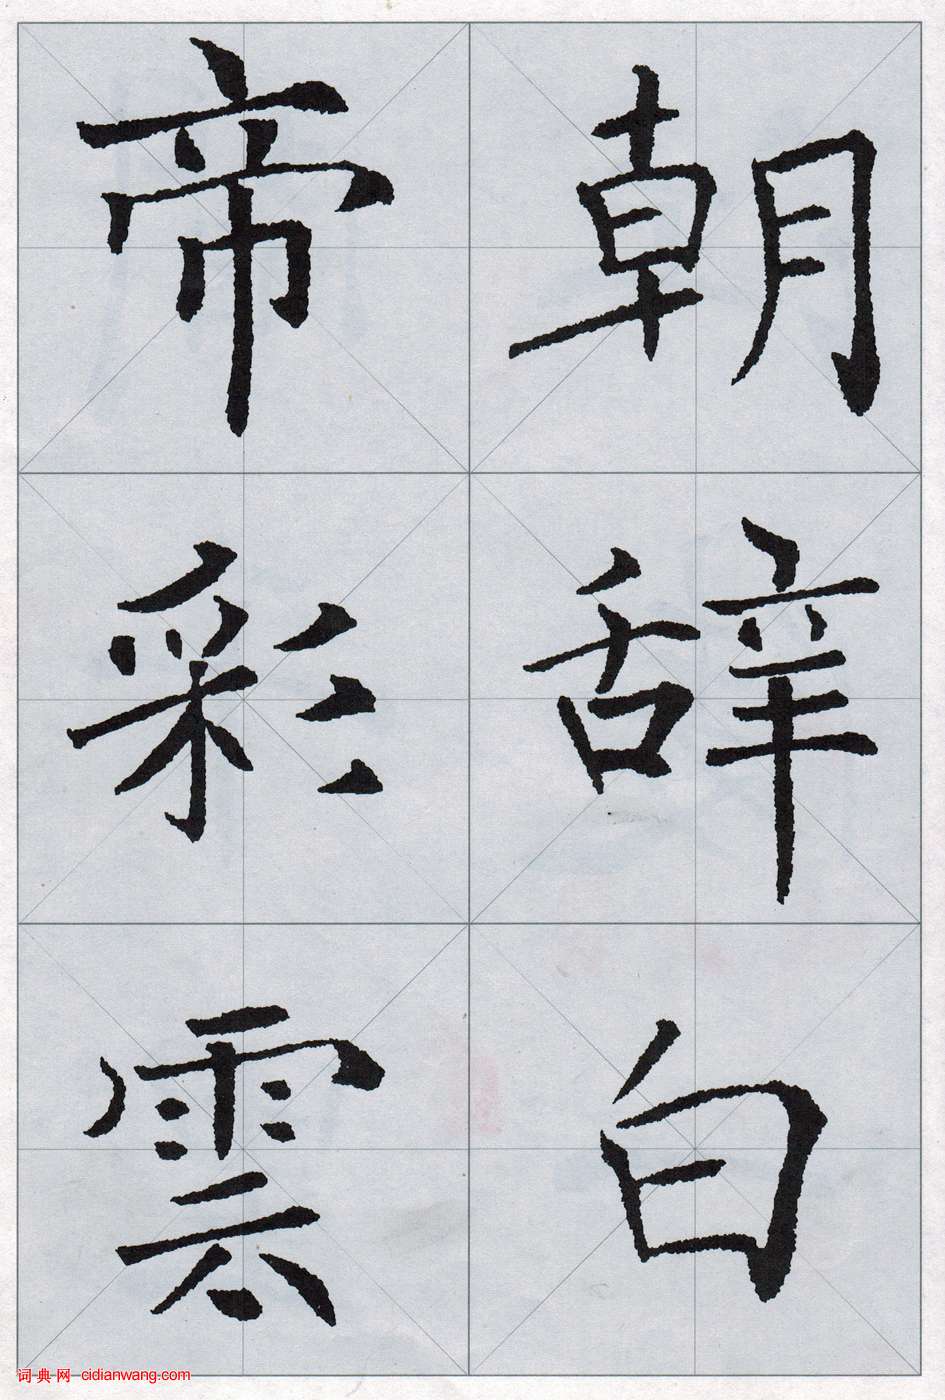 朝辞白
帝彩雲
词典网 cidianwang.com